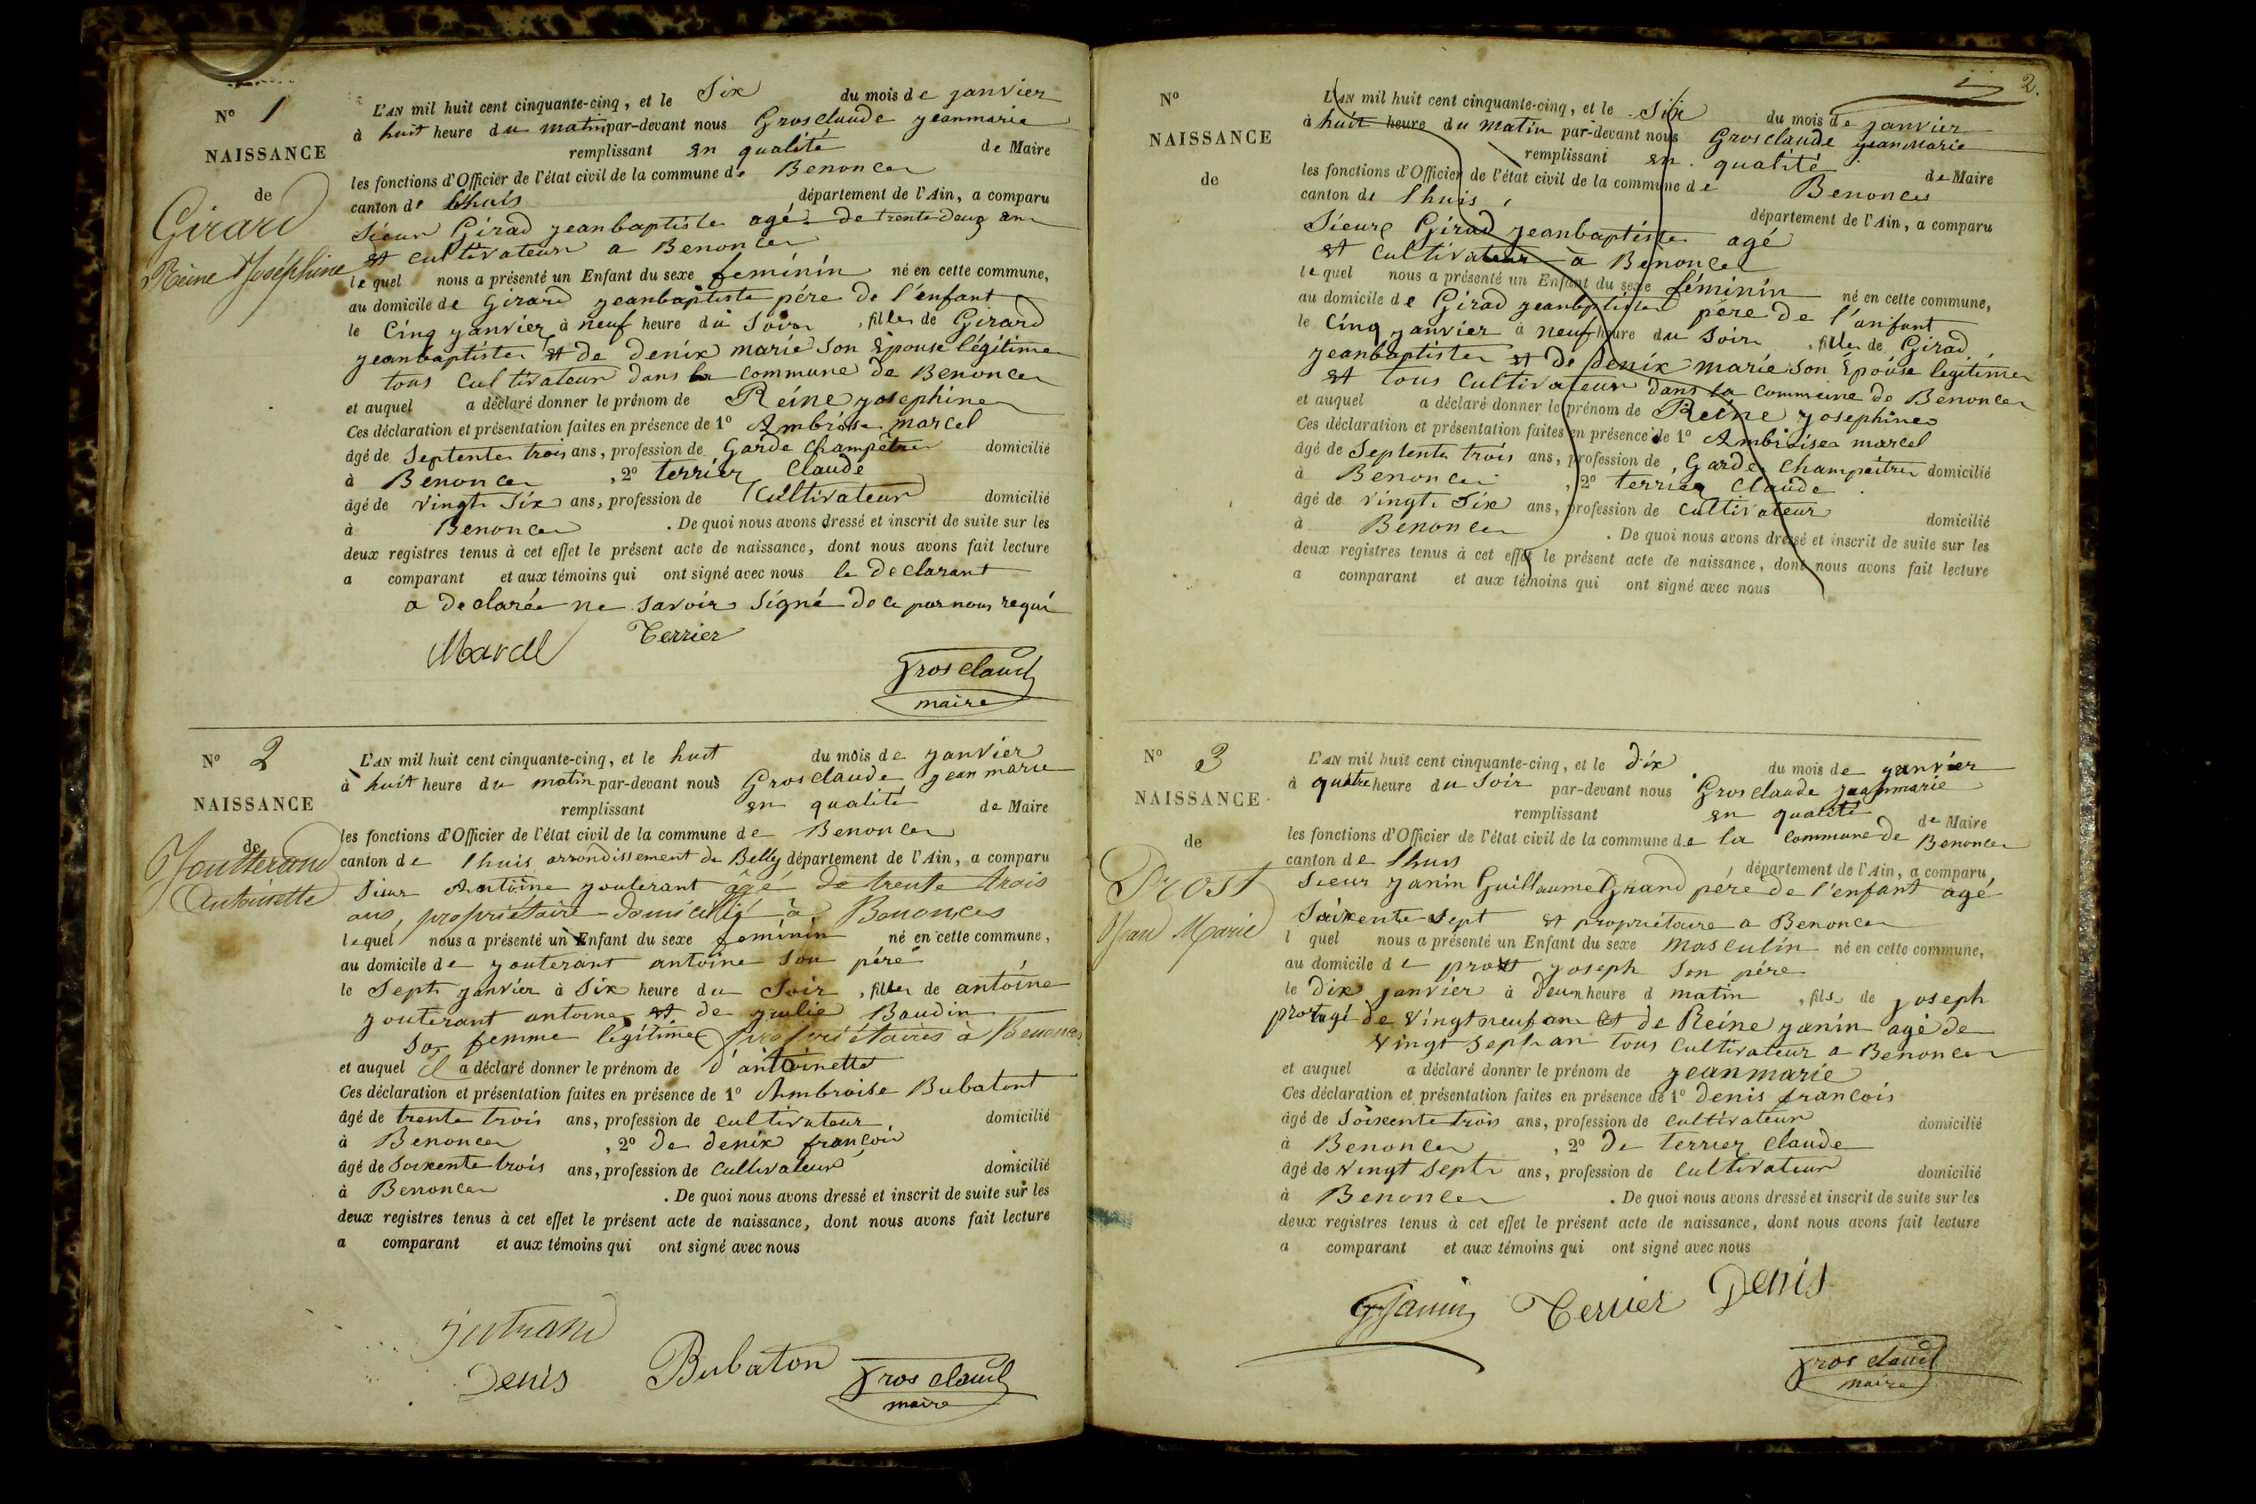 N° 1
NAISSANCE
de
Girard
Reine Joséphine
L'AN mil huit cent cinquante-cinq, et le Six du mois de janvier
à huit heure du matin par-devant nous Grosclaude jeanmarie
remplissant en qualité de Maire
les fonctions d'Officier de l'état civil de la commune de Benonce
canton de lhuis département de l'Ain, a comparu
Sieur Girad jeanbaptiste agé de trente deux an
et cultivateur a Benonce
lequel nous a présenté un Enfant du sexe feminin né en cette commune,
au domicile de Girard jeanbaptiste pére de l'enfant
le Cinq janvier à neuf heure du Soir, fille de Girard
jeanbaptiste et de denix marie son Epouse légitime
tous Cultivateur dans la commune de Benonce
et auquel a déclaré donner le prénom de Reine josephine
Ces déclaration et présentation faites en présence de 1° Ambroise marcel
âgé de Septente trois ans, profession de Garde Champêtre domicilié
à Benonce, 2° terrier Claude
âgé de vingt Six ans, profession de Cultivateur domicilié
à Benonce. De quoi nous avons dressé et inscrit de suite sur les
deux registres tenus à cet effet le présent acte de naissance, dont nous avons fait lecture
a comparant et aux témoins qui ont signé avec nous le declarant
a declarée ne savoir signé de ce par nous requi
Marcel Terrier
Grosclaud
maire
N° 2
NAISSANCE
de
Joutterand
Antoinette
L'AN mil huit cent cinquante-cinq, et le huit du mois de janvier
à huit heure du matin par-devant nous Grosclaude jean marie
remplissant en qualité de Maire
les fonctions d'Officier de l'état civil de la commune de Benonce
canton de lhuis arrondissement de Belley département de l'Ain, a comparu
Sieur Antoine jouterant âgé de trente trois
ans, propriétaire domicillié à Bononces
lequel nous a présenté un Enfant du sexe feminin né en cette commune,
au domicile de jouterant antoine son pére
le Sept janvier à Six heure du Soir, fille de antoine
jouterant antoine et de julie Baudin
sa femme legitime propriétaires à Benonces
et auquel il a déclaré donner le prénom de d'antoinette
Ces déclaration et présentation faites en présence de 1° Ambroise Bubatont
âgé de trente trois ans, profession de cultivateur domicilié
à Benonce, 2° de denix francois
âgé de soixente trois ans, profession de cultivateur domicilié
à Benonce. De quoi nous avons dressé et inscrit de suite sur les
deux registres tenus à cet effet le présent acte de naissance, dont nous avons fait lecture
a comparant et aux témoins qui ont signé avec nous
Denis Bubaton Grosclaud
maire
2.
N°
NAISSANCE
de
L'AN mil huit cent cinquante-cinq, et le Six du mois de janvier
à huit heure du matin par-devant nous Grosclaude jeanmarie
remplissant en qualité de Maire
les fonctions d'Officier de l'état civil de la commune de Benonces
canton de lhuis, département de l'Ain, a comparu
Sieur Girad jeanbaptiste agé
et cultivateur à Benonce
lequel nous a présenté un Enfant du sexe féminin né en cette commune,
au domicile de Girad jeanbptiste pére de l'anfant
le Cinq janvier à neuf heure du Soir, fille de Girad
jeanbaptiste et de denix marie son Epouse legitime
et tous Cultivateur dans la commune de Benonce
et auquel a déclaré donner le prénom de Reine josephine
Ces déclaration et présentation faites en présence de 1° Ambroise marcel
âgé de Septente trois ans, profession de, Garde Champaitre domicilié
à Benonce, 2° terrier Claude
âgé de vingt Six ans, profession de Cultivateur domicilié
à Benonce. De quoi nous avons dressé et inscrit de suite sur les
deux registres tenus à cet effet le présent acte de naissance, dont nous avons fait lecture
a comparant et aux témoins qui ont signé avec nous
N° 3
NAISSANCE
de
Prost
Jean Marie
L'AN mil huit cent cinquante-cinq, et le dix du mois de janvier
à quatre heure du Soir par-devant nous Grosclaude jeanmarie
remplissant en qualité de Maire
les fonctions d'Officier de l'état civil de la commune de la commune de Benonce
canton de lhuis département de l'Ain, a comparu
Sieur janin Guillaume Grand pére de l'enfant agé
Soixente sept et propriétaire a Benonce
l quel nous a présenté un Enfant du sexe masculin né en cette commune,
au domicile de prost joseph son pére
le dix janvier à deux heure d matin, fils de joseph
prost agé de vingt neuf an et de Reine janin agé de
vingt sept an tous cultivateur a Benonce
et auquel a déclaré donner le prénom de jeanmarie
Ces déclaration et présentation faites en présence de 1° denis francois
âgé de Soixente trois ans, profession de cultivateur domicilié
à Benonce, 2° de terrier claude
âgé de vingt sept ans, profession de cultivateur domicilié
à Benonce. De quoi nous avons dressé et inscrit de suite sur les
deux registres tenus à cet effet le présent acte de naissance, dont nous avons fait lecture
a comparant et aux témoins qui ont signé avec nous
GJanin Terrier Denis
Grosclaud
maire